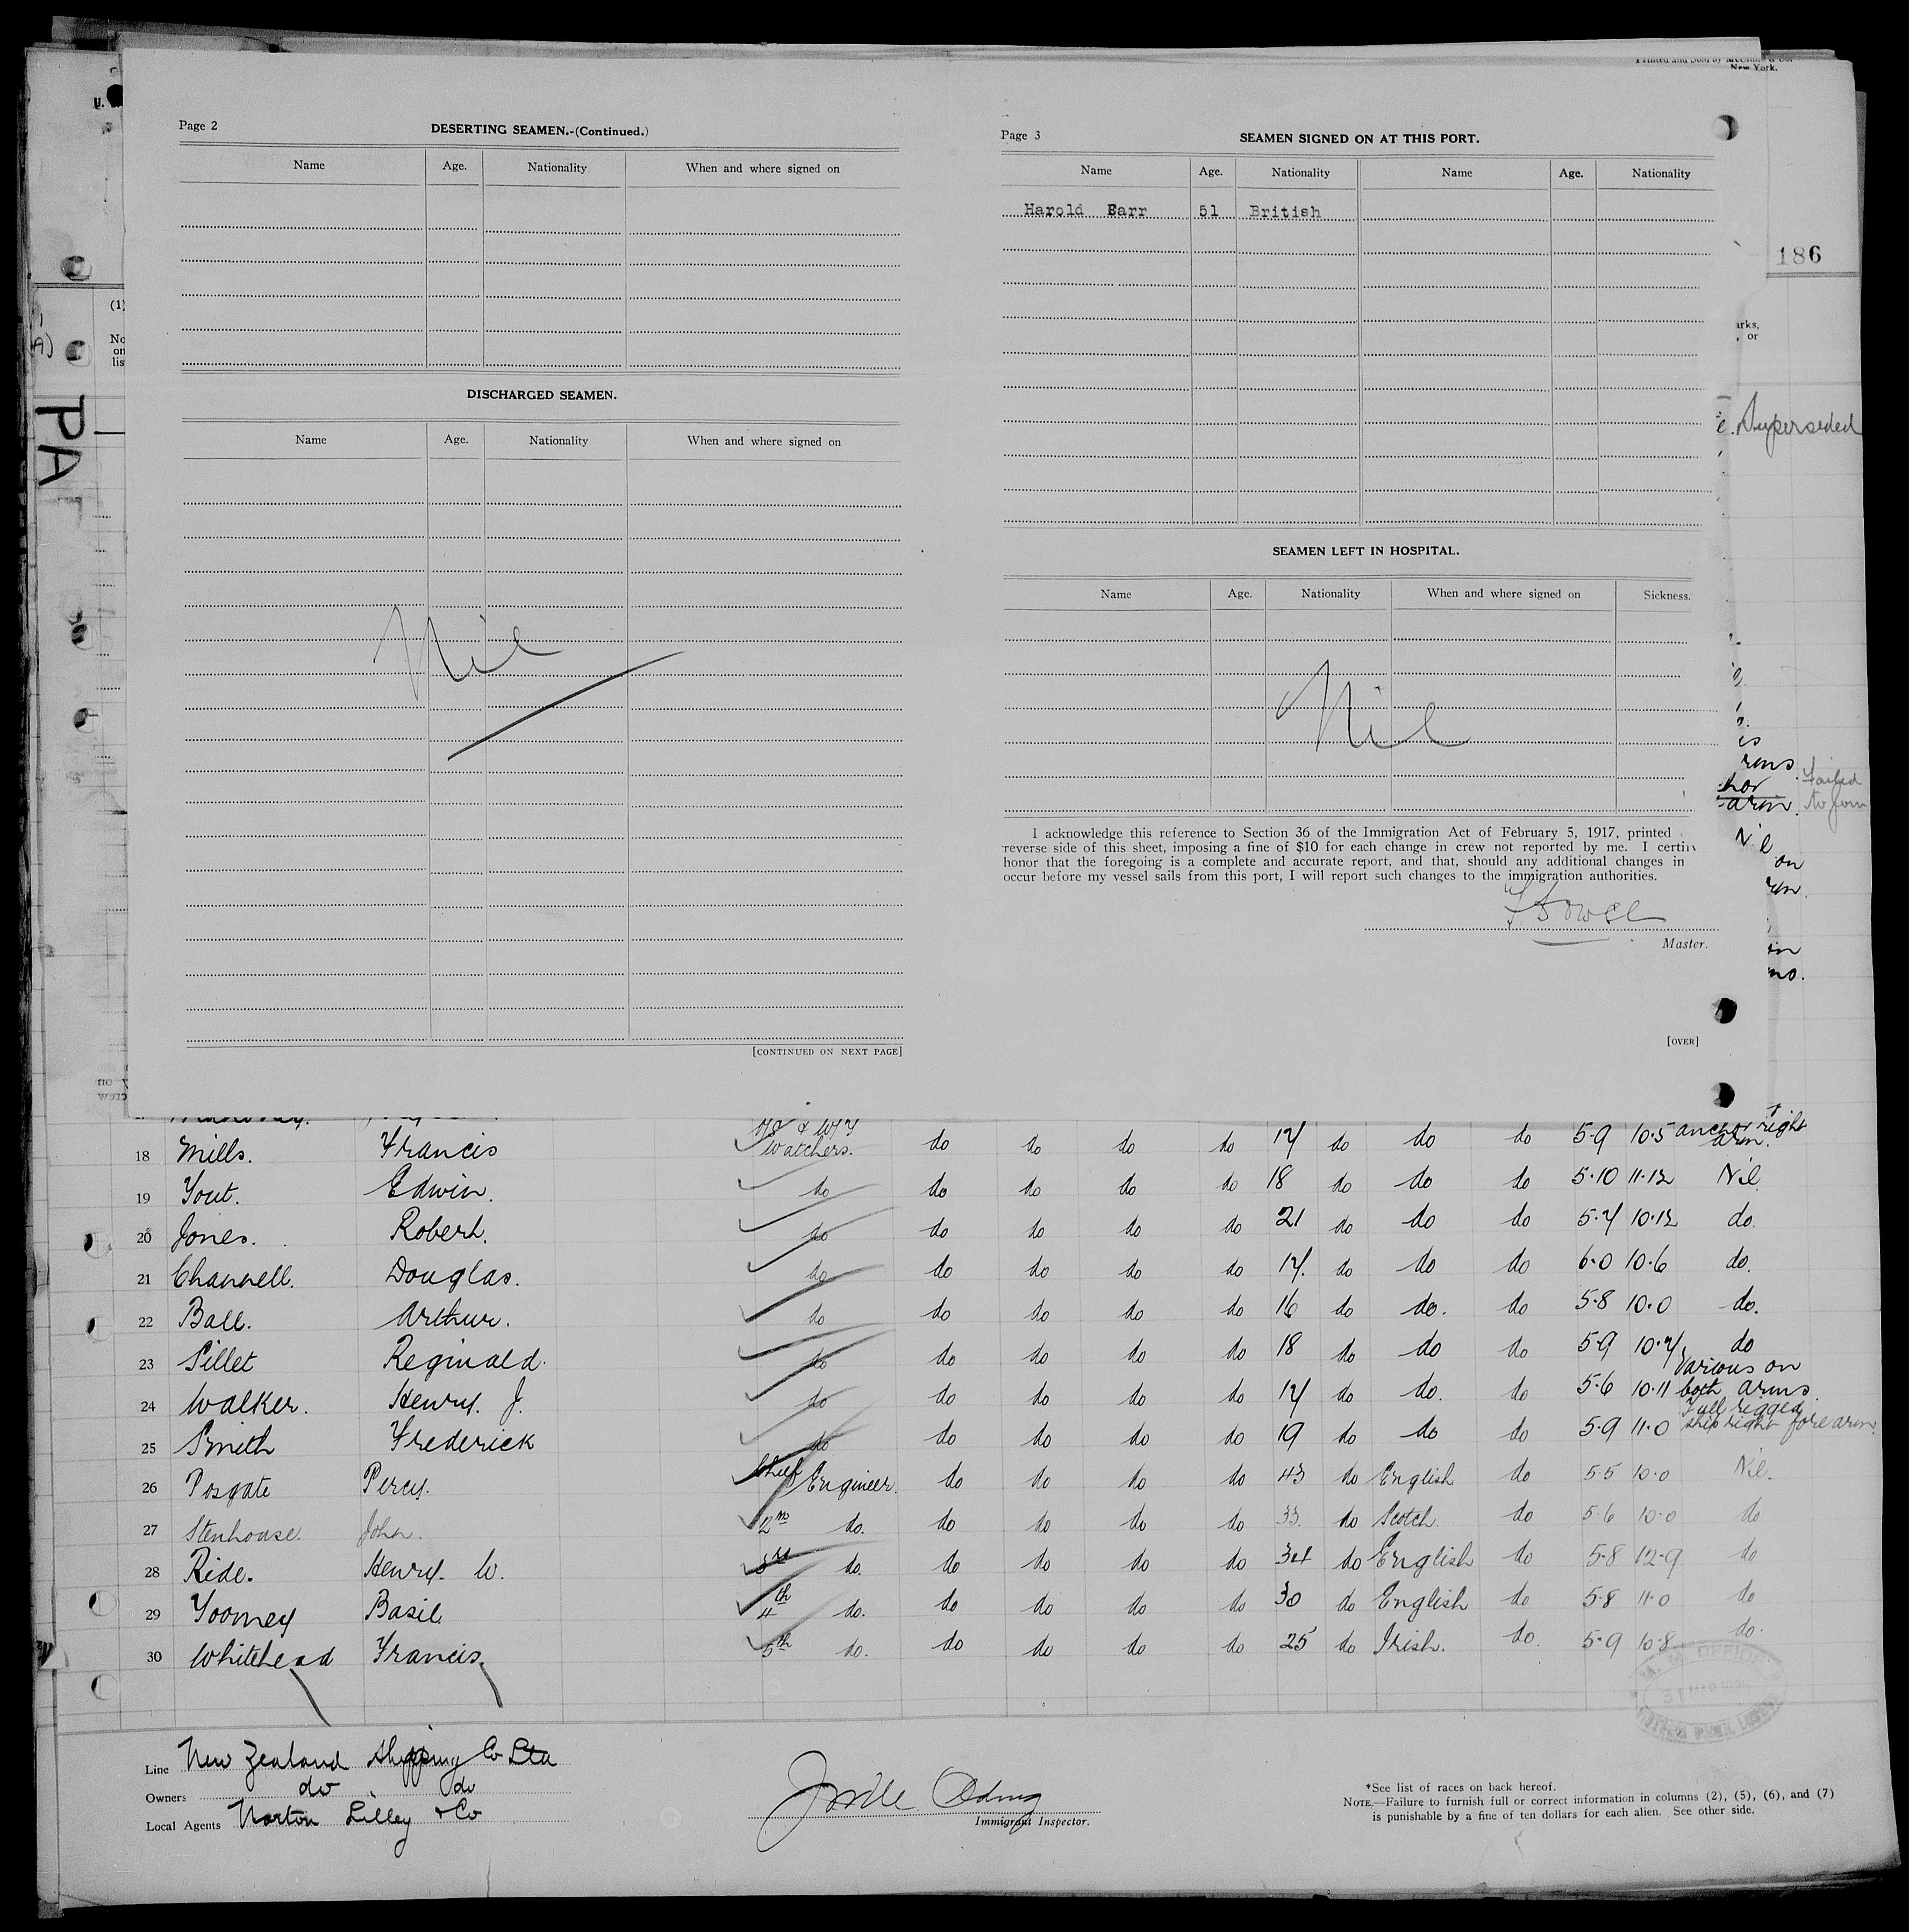 New York.
Page 2
DESERTING SEAMEN.-(Continued.)
Name Age. Nationality When and where signed on
DISCHARGED SEAMEN.
Name Age. Nationality When and where signed on
Nil
[CONTINUED ON NEXT PAGE]
Page 3
SEAMEN SIGNED ON AT THIS PORT.
Name Age. Nationality Name Age. Nationality
Harold Barr 51 British
SEAMEN LEFT IN HOSPITAL.
Name Age. Nationality When and where signed on Sickness.
Nil
I acknowledge this reference to Section 36 of the Immigration Act of February 5, 1917, printed
reverse side of this sheet, imposing a fine of $10 for each change in crew not reported by me. I
honor that the foregoing is a complete and accurate report, and that, should any additional changes in
occur before my vessel sails from this port, I will report such changes to the immigration authorities.
Master.
[OVER]
186
Superseded
Failed
to join
PA
18 Mills. Francis Watchers. do do do do 17 do do do 5-9 10-5 anchor right arm.
19 Edwin. do do do do do 18 do do do 5-10 11-12 Nil
20 Jones. Robert. do do do do do 21 do do do 5-7 10-12 do.
21 Channell. Douglas. do do do do do 17. do do do 6-0 10-6 do.
22 Ball. Arthur. do do do do do 16 do do. do 5-8 10-0 do.
23 Sillet Reginald. do do do do do 18 do do do 5-9 10-7 do
24 Walker. Henry. J. do do do do do 17 do do. do 5-6 10-11 Various on both arms.
25 Smith Frederick do do do do do 19 do do do 5-9 11-0 Full rigged ship right forearm.
26 Posgate Percy. Chief Engineer. do do do do 43 do English do 5-5 10-0 Nil.
27 Stenhouse. John. 2nd do. do do do do 33. do Scotch. do 5-6 10-0 do
28 Ride. Henry. W. 3rd do. do do do do 34 do English do 5-8 12-9 do
29 Toomey Basil 4th do. do do do do 30 do English do 5-8 11-0 do
30 Whitehead Francis 5th do. do do do do 25 do Irish. do. 5-9 10-8 do.
Line New Zealand Shipping Co Ltd
Owners do do
Local Agents Norton Lilley & Co
Immigrant Inspector.
*See list of races on back hereof.
NOTE.—Failure to furnish full or correct information in columns (2), (5), (6), and (7)
is punishable by a fine of ten dollars for each alien. See other side.